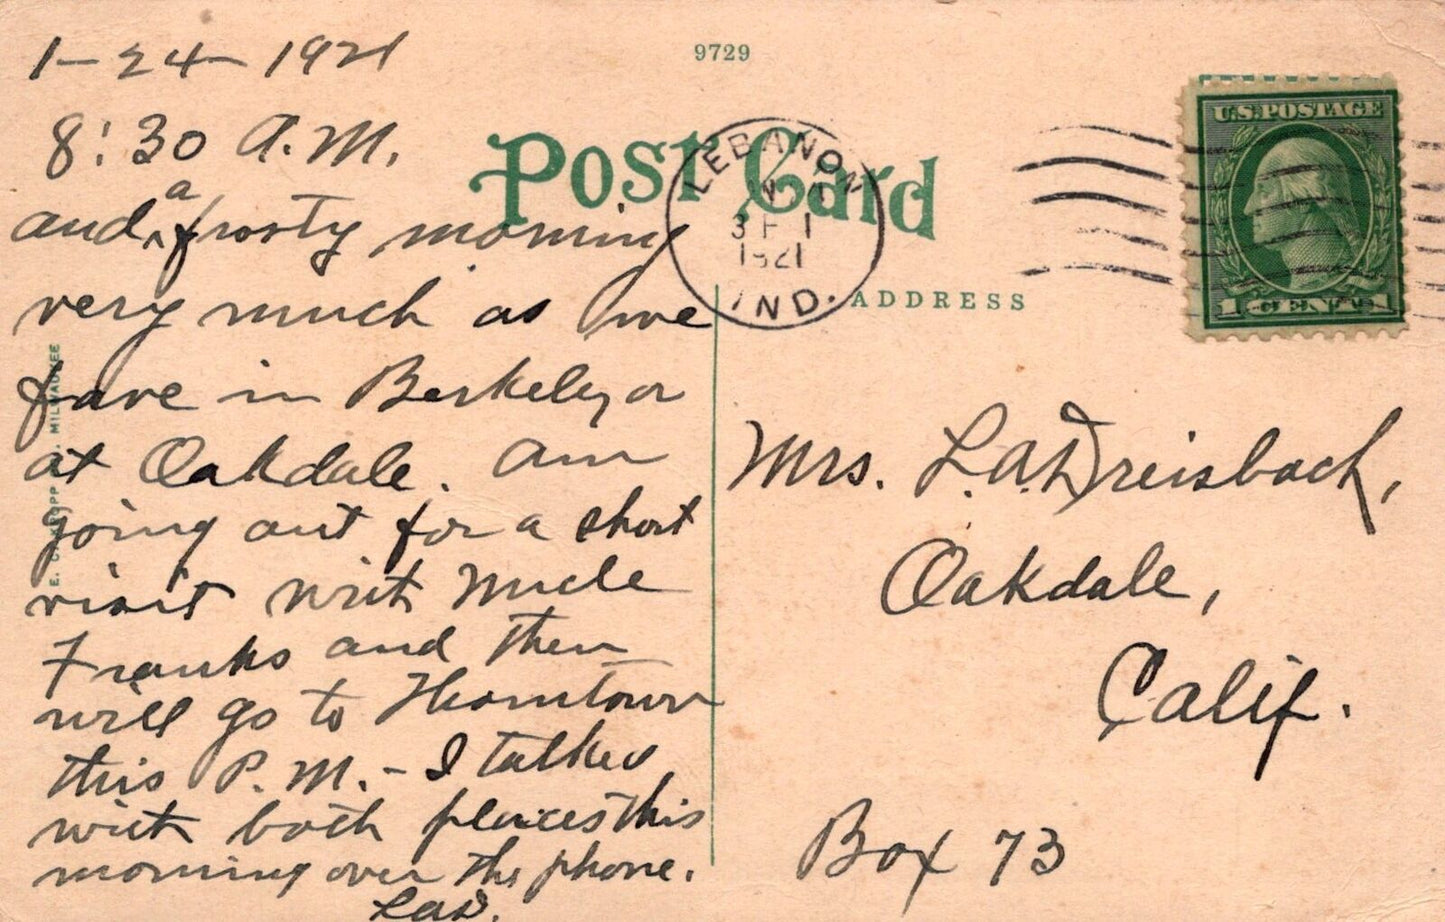 1-24-1921
8:30 A.M.
and a frosty morning
very much as we
have in Berkeley or
at Oakdale. Am
going out for a short
visit with Uncle
Franks and then
will go to Thorntown
this P.M. - I talked
with both places this
morning over the phone.
LAD.
9729
POST CARD
ADDRESS
LEBANON
1921
IND.
U.S. POSTAGE
1 CENT 1
Mrs. L.A. Dreisbach,
Oakdale,
Calif.
Box 73
MILWAUKEE